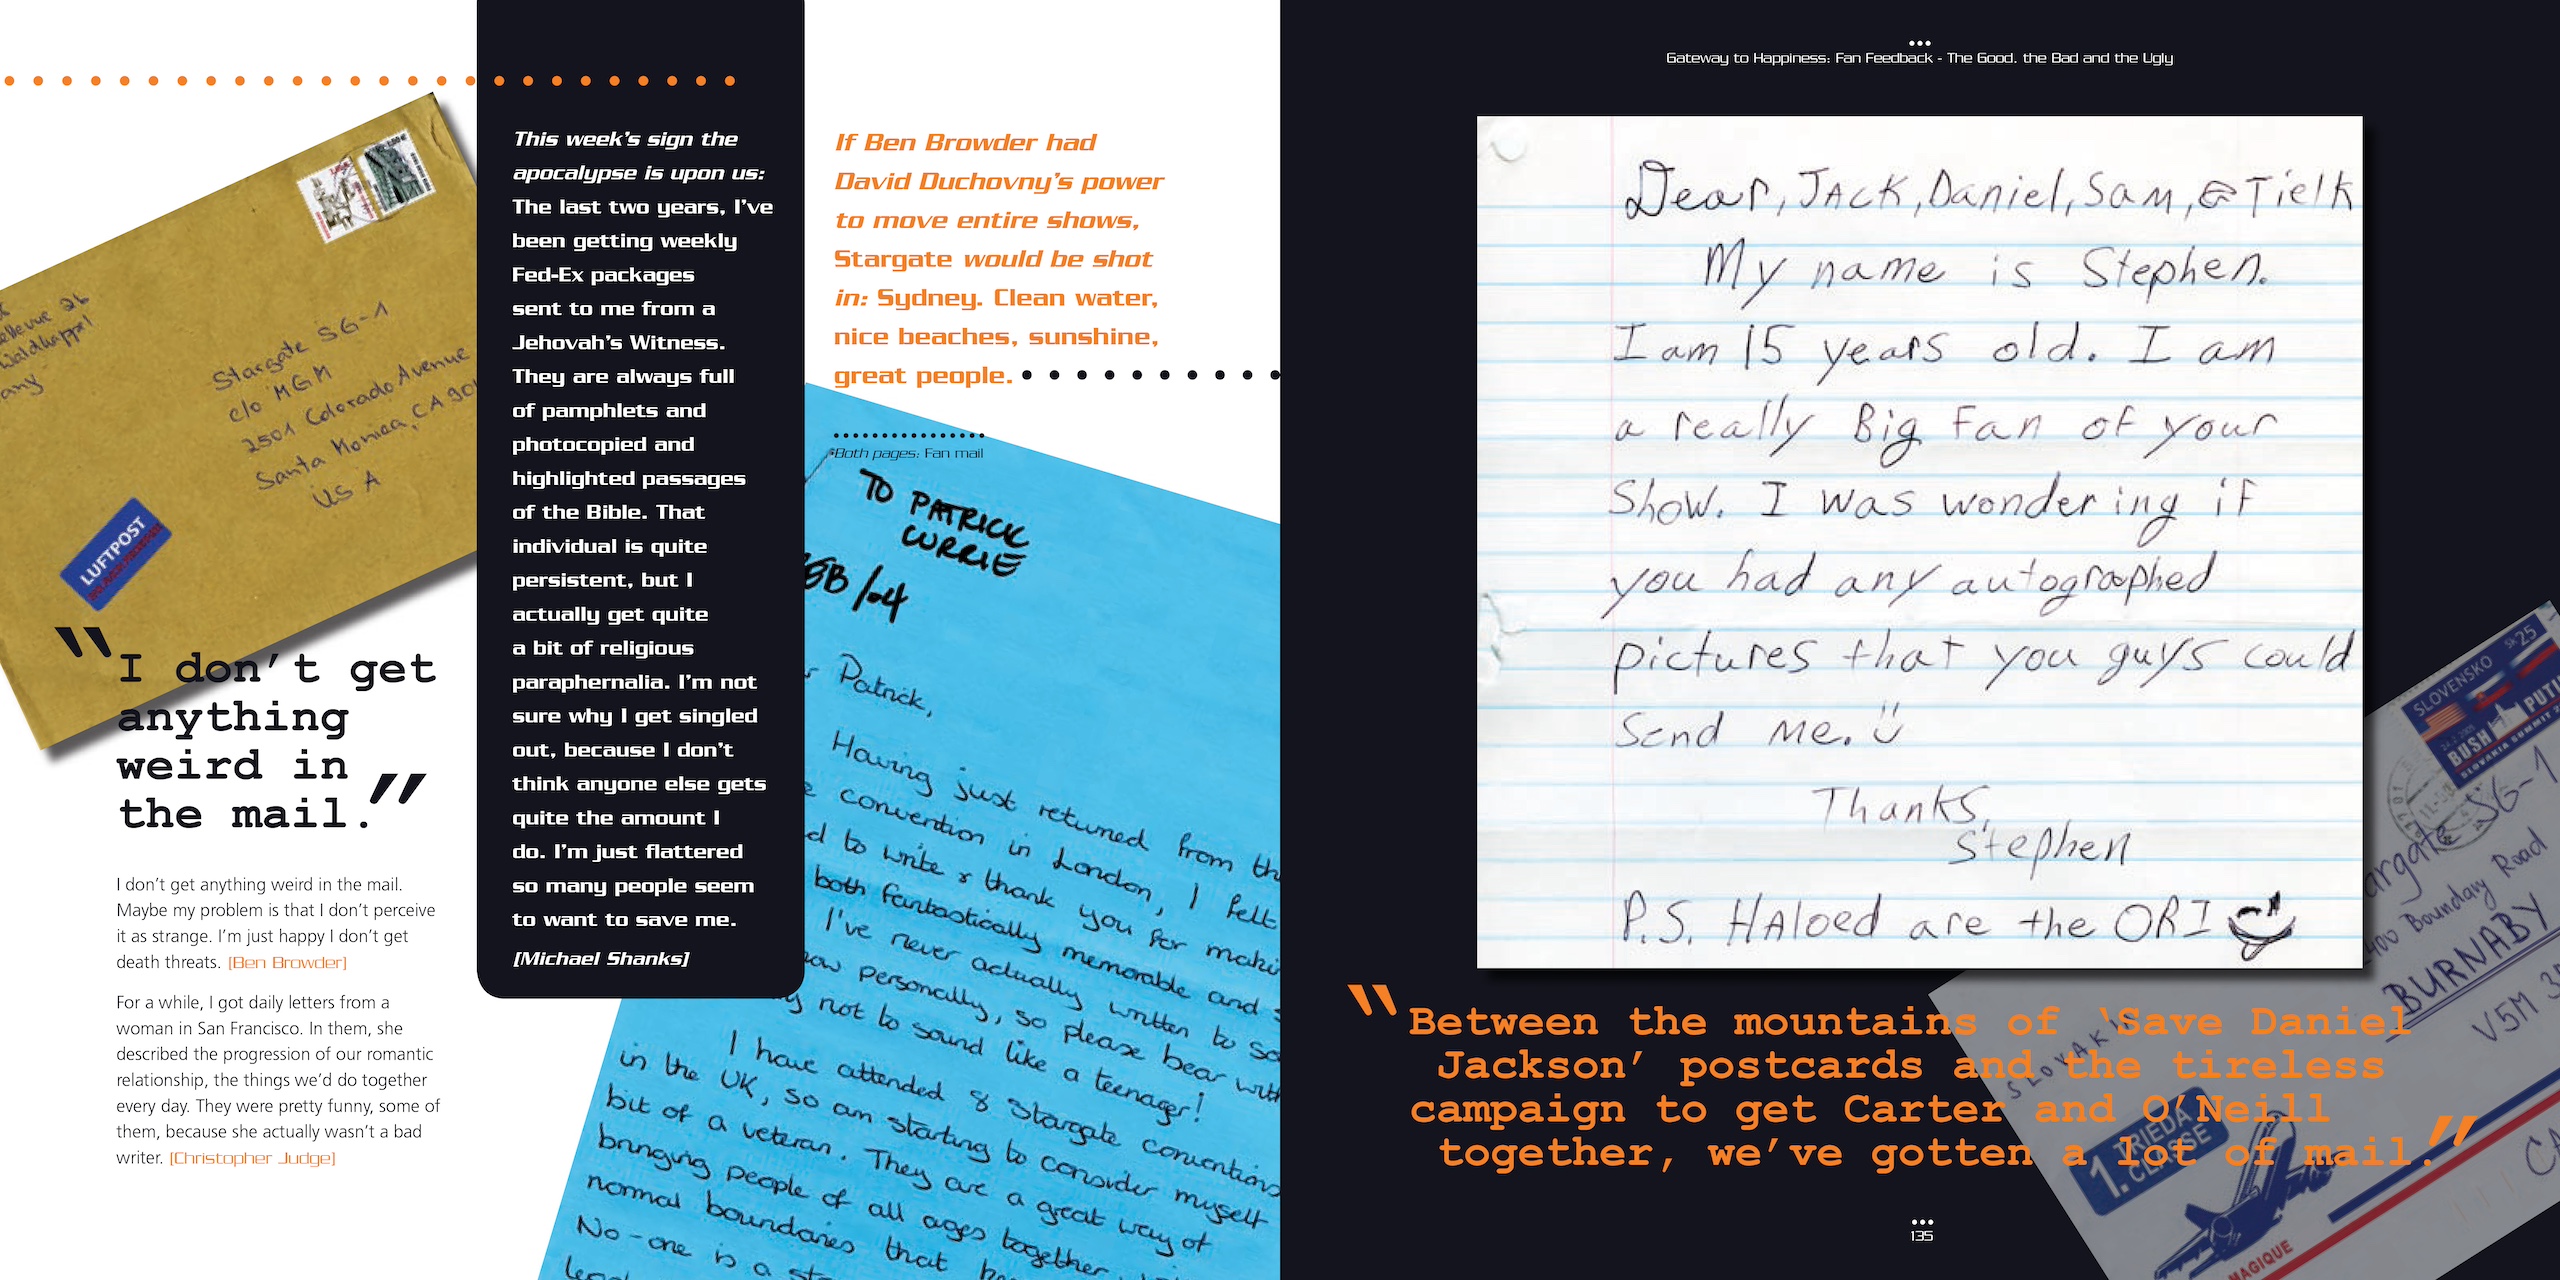 Stargate SG-1
c/o MGM
2501 Colorado Avenue
Santa Monica, CA
USA
LUFTPOST
“I don’t get
anything
weird in
the mail.”
I don’t get anything weird in the mail.
Maybe my problem is that I don’t perceive
it as strange. I’m just happy I don’t get
death threats. [Ben Browder]
For a while, I got daily letters from a
woman in San Francisco. In them, she
described the progression of our romantic
relationship, the things we’d do together
every day. They were pretty funny, some of
them, because she actually wasn’t a bad
writer. [Christopher Judge]
This week’s sign the
apocalypse is upon us:
The last two years, I’ve
been getting weekly
Fed-Ex packages
sent to me from a
Jehovah’s Witness.
They are always full
of pamphlets and
photocopied and
highlighted passages
of the Bible. That
individual is quite
persistent, but I
actually get quite
a bit of religious
paraphernalia. I’m not
sure why I get singled
out, because I don’t
think anyone else gets
quite the amount I
do. I’m just flattered
so many people seem
to want to save me.
[Michael Shanks]
If Ben Browder had
David Duchovny’s power
to move entire shows,
Stargate would be shot
in: Sydney. Clean water,
nice beaches, sunshine,
great people.
Both pages: Fan mail
TO PATRICK
CURRIE
Patrick,
Having just returned from
convention in London, I felt
to write & thank you for
both fantastically memorable and
I've never actually written to
personally, so please bear with
not to sound like a teenager!
I have attended 8 Stargate conventions
in the UK, so am starting to consider myself
bit of a veteran. They are a great way of
bringing people of all ages together
normal boundaries that
No-one is a
Gateway to Happiness: Fan Feedback - The Good, the Bad and the Ugly
Dear, JACK, Daniel, Sam, & Tielk
My name is Stephen.
I am 15 years old. I am
a really Big Fan of your
Show. I was wondering if
you had any autographed
pictures that you guys could
Send me.
Thanks,
Stephen
P.S. HAloed are the ORI
SLOVENSKO Sk 25
BUSH PUTIN
Stargate SG-1
2400 Boundary Road
BURNABY
V5M
SLOVAKIA
1. TRIEDA
CLASSE
“Between the mountains of ‘Save Daniel
Jackson’ postcards and the tireless
campaign to get Carter and O’Neill
together, we’ve gotten a lot of mail.”
135